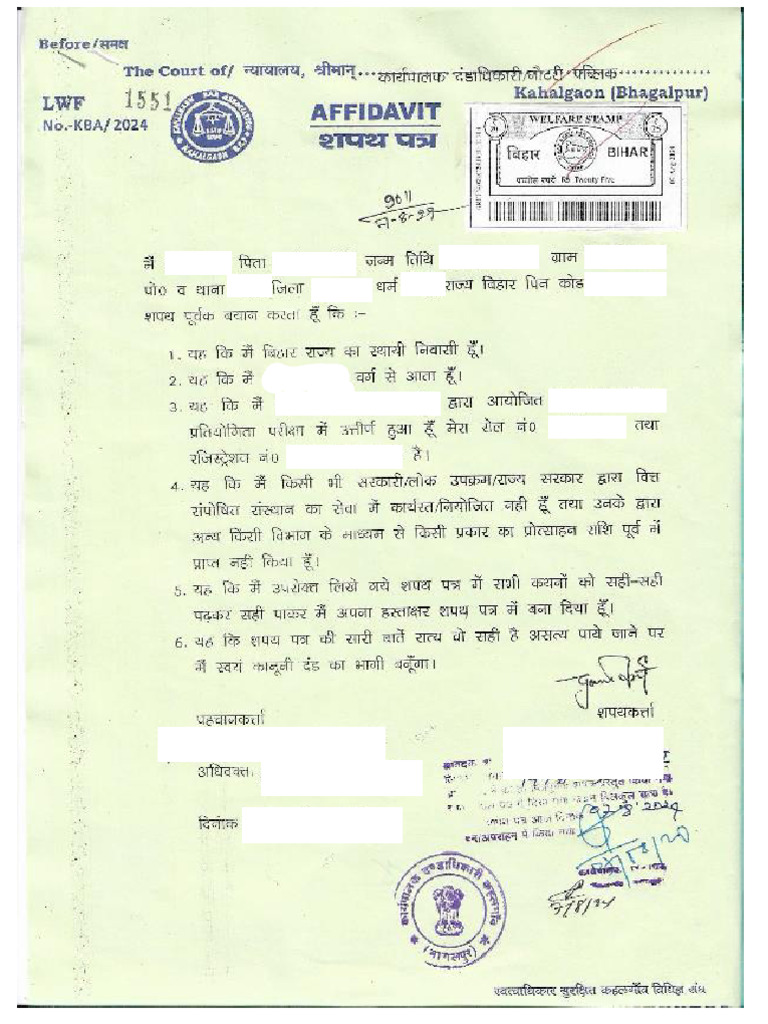 Before/समक्ष
The Court of/ न्यायालय, श्रीमान्....कार्यपालक दंडाधिकारी/नोटरी पब्लिक..............
Kahalgaon (Bhagalpur)
LWF 1551
No.-KBA/2024
AFFIDAVIT
शपथ पत्र
WELFARE STAMP
25 25
बिहार BIHAR
पच्चीस रुपये RS. Twenty Five
9011
7-8-24
मैं पिता जन्म तिथि ग्राम
पो0 व थाना जिला धर्म राज्य बिहार पिन कोड
शपथ पूर्वक बयान करता हूँ कि :-
1. यह कि मैं बिहार राज्य का स्थायी निवासी हूँ।
2. यह कि मैं वर्ग से आता हूँ।
3. यह कि मैं द्वारा आयोजित
प्रतियोगिता परीक्षा में उत्तीर्ण हुआ हूँ मेरा रोल नं0 तथा
रजिस्ट्रेशन नं0 है।
4. यह कि मैं किसी भी सरकारी/लोक उपक्रम/राज्य सरकार द्वारा वित्त
संपोषित संस्थान का सेवा में कार्यरत/नियोजित नही हूँ तथा उनके द्वारा
अन्य किसी विभाग के माध्यम से किसी प्रकार का प्रोत्साहन राशि पूर्व में
प्राप्त नही किया हूँ।
5. यह कि मैं उपरोक्त लिखे गये शपथ पत्र में सभी कथनों को सही-सही
पढ़कर सही पाकर मैं अपना हस्ताक्षर शपथ पत्र में बना दिया हूँ।
6. यह कि शपथ पत्र की सारी बातें सत्य वो सही है असत्य पाये जाने पर
मैं स्वयं कानूनी दंड का भागी बनूँगा।
शपथकर्त्ता
पहचानकर्त्ता
अधिवक्ता
दिनांक
कार्यपालक दण्डाधिकारी कहलगाँव
(भागलपुर)
7/8/24
स्वत्वाधिकार सुरक्षित कहलगाँव विधिज्ञ संघ